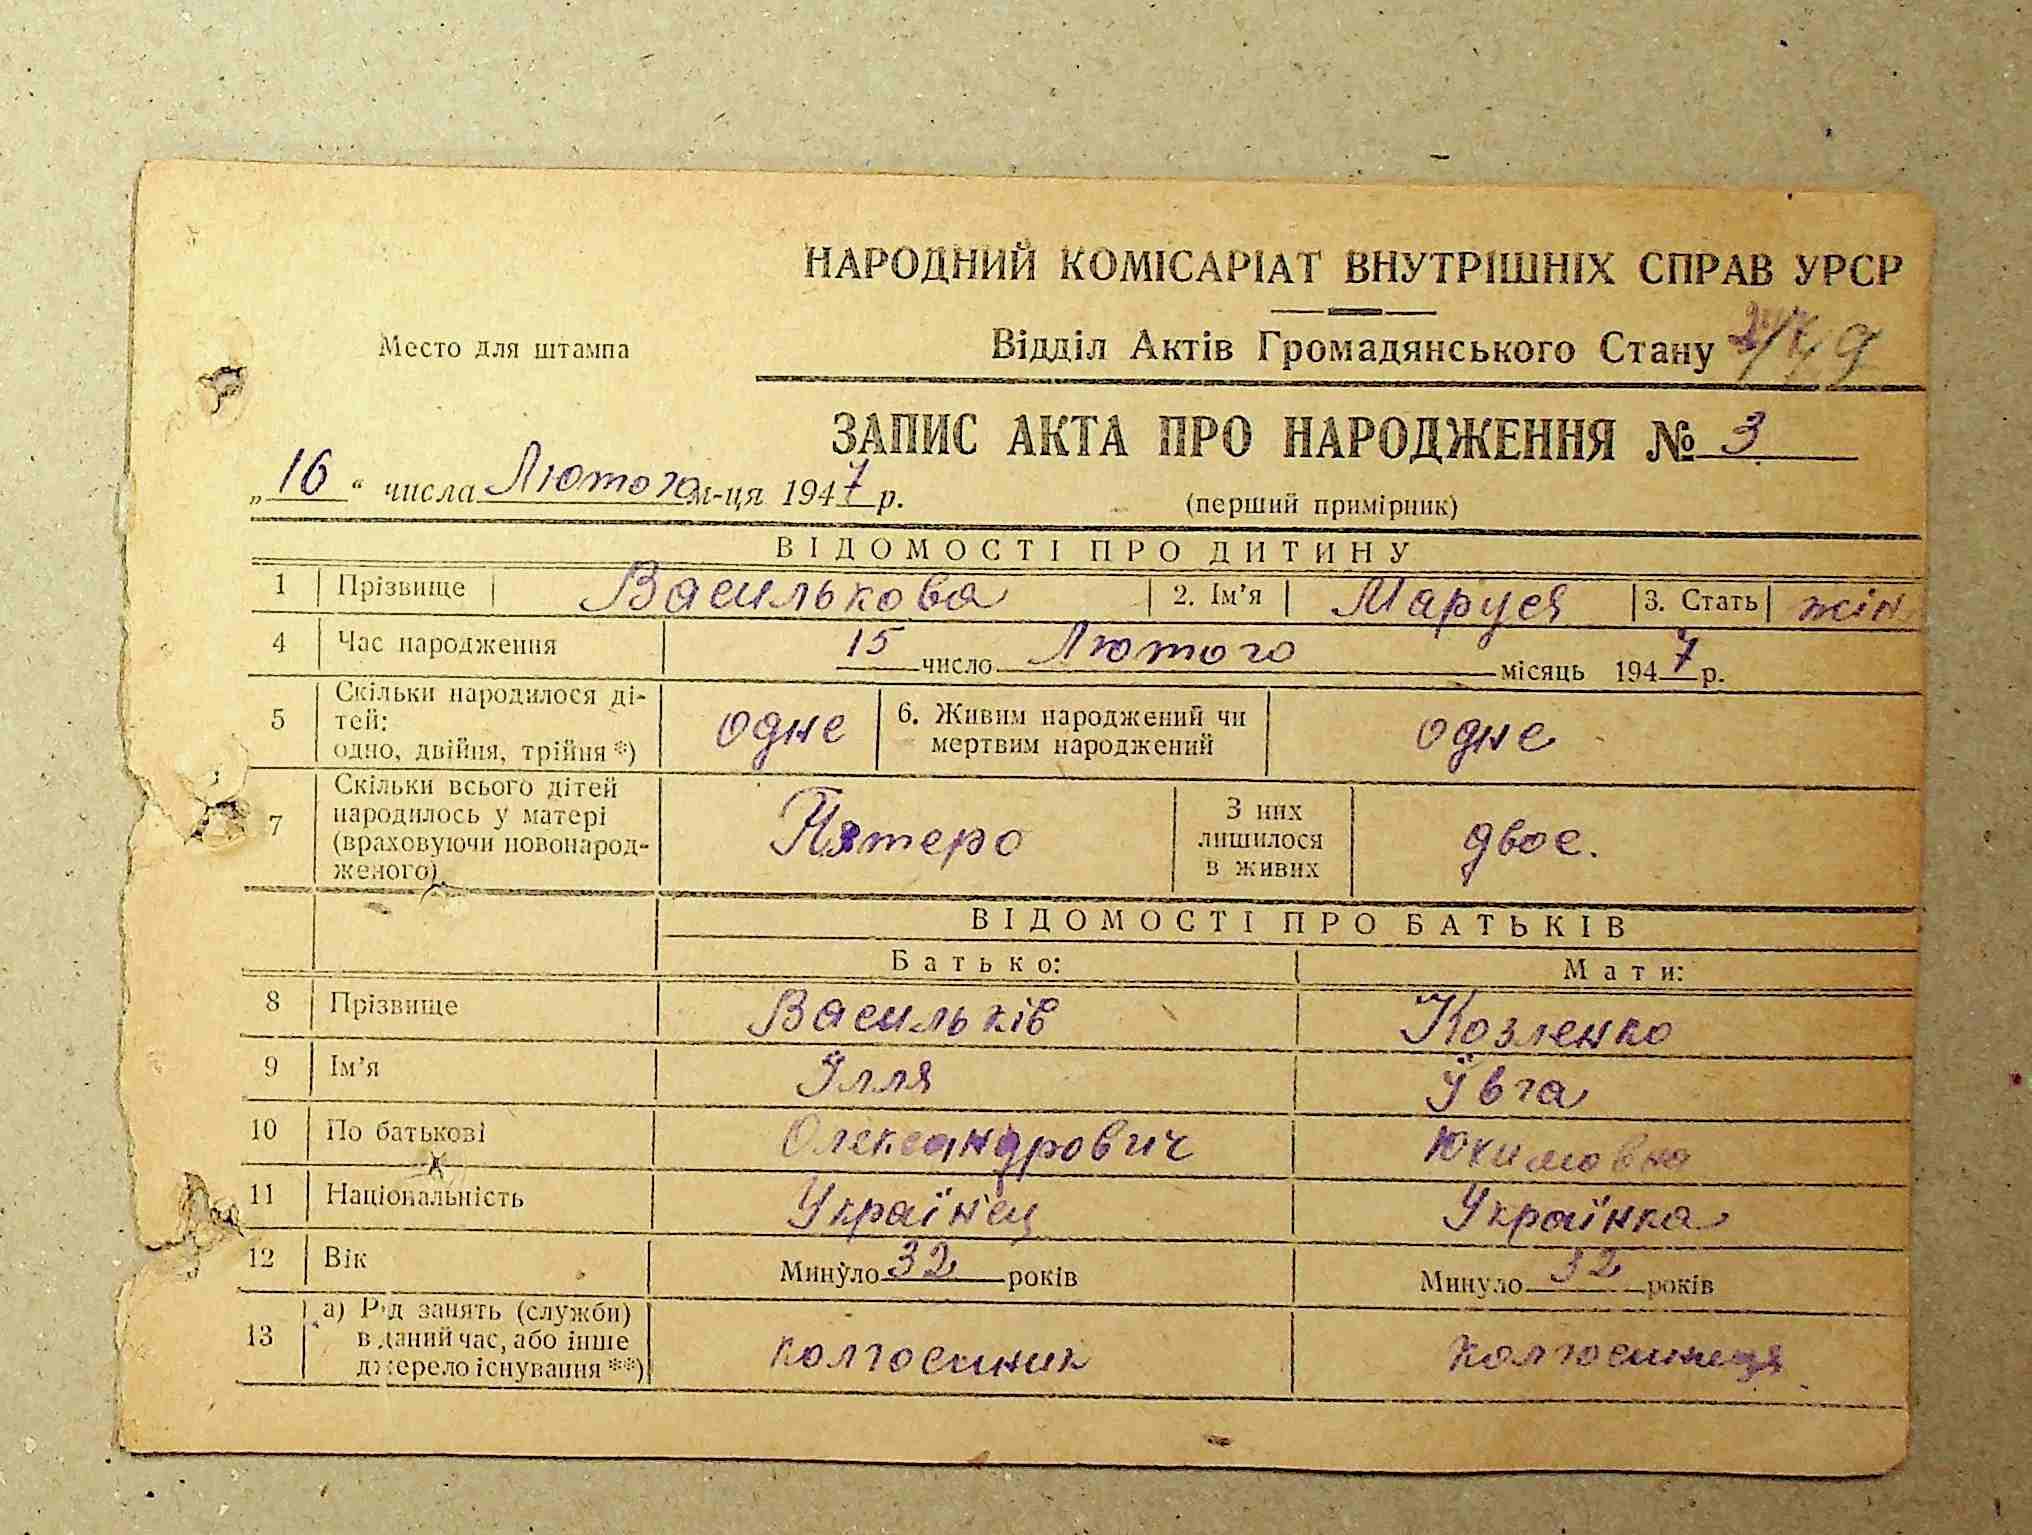 НАРОДНИЙ КОМІСАРІАТ ВНУТРІШНІХ СПРАВ УРСР
Место для штампа
Відділ Актів Громадянського Стану
ЗАПИС АКТА ПРО НАРОДЖЕННЯ № 3
„16“ числа Лютого м-ця 1947 р.
(перший примірник)
ВІДОМОСТІ ПРО ДИТИНУ
1 Прізвище Василькова 2. Ім'я Маруся 3. Стать жін
4 Час народження 15 число Лютого місяць 1947 р.
5 Скільки народилося ді-
тей:
одно, двійня, трійня *) одне 6. Живим народжений чи
мертвим народжений одне
7 Скільки всього дітей
народилось у матері
(враховуючи новонарод-
женого) Пятеро З них
лишилося
в живих двое.
ВІДОМОСТІ ПРО БАТЬКІВ
Батько: Мати:
8 Прізвище Васильків Козленко
9 Ім'я Ілля Ївга
10 По батькові Олександрович Юхимовна
11 Національність Українец Українка
12 Вік Минуло 32 років Минуло 32 років
13 а) Рід занять (служби)
в даний час, або інше
джерело існування **) колгоспник колгоспниця